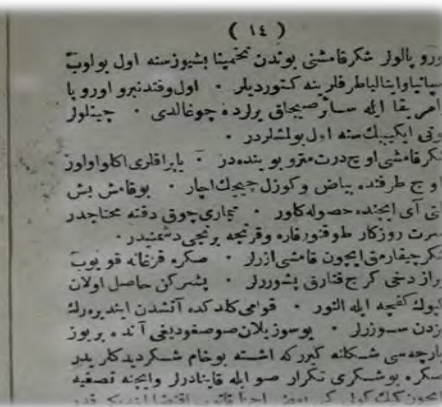 ( ١٤ )
وروپالولر شكرقامشنى بوندن تخمينا بشيوزسنه اول بولوب
سپانياوايتالياطرفلرينه كتورديلر ٠ اول وقتدنبرو اوروپا
امريقا ايله سائر صيجاق يرلرده چوغالدى ٠ چينلولر
ايكيبيك سنه اول بولمشلردر ٠
شكرقامشى اوچ درت مترو بوينده در ٠ يا پراقلرى
اوچ طرفنده بياض وكوزل چيچك اچار ٠ بوقامش بش
التى آى ايچنده حصوله كلور ٠ تيمارى چوق دقته محتاجدر
سرت روزكار طوقنور فاره وقرنجه برنجى دشمنيدر ٠
شكرچيقارمق ايچون قامشى ازرلر ٠ صكره قزغانه قويوب
براز دخى كرج قتارق پشوررلر ٠ پشركن حاصل اولان
كپوك كفچه ايله النور ٠ قوامى كلدكده آتشدن اينديره رك
بزدن سوزرلر ٠ بوسوزيلان صوصغوديغى آنده بربوز
پارچه سى شكلنه كيرركه اشته بوخام شكرديدكلريدر
صكره بوشكرى تكرار صو ايله قايناد رلر وايچنه تصفيه
ايچون